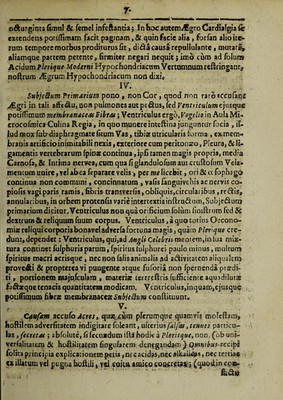 7.
octurginta simul & semel infestantia; In hoc autem Ægro Cardialgia se
extendens potissimum facit paginam, & quin facie alia, forsan alio ite-
rum tempore morbus proditurus sit, dictâ causâ repullulante, mutarâ,
aliamque partem petente, firmiter negari nequit; imò cùm ad solum
Acidum Plerique Moderni Hypochondriacem Vertumnum restringant,
nostrum Ægrum Hypochondriacum non dixi.
IV.
Subjectum Primarium pono, non Cor, quod non rarò accusant
Ægri in tali affectu, non pulmones aut pectus, sed Ventriculum ejusque
potissimum membranaceas Fibras; Ventriculus ergò, Vogelia in Aula Mi-
crocosmica Culina Regia, in quo munere insistina junguntur socia, il-
lud mox sub diaphragmate situm Vas, tibiæ utricularis forma, ex mem-
branis artificio inimitabili nexis, exteriore cum peritonæo, Pleura, & li-
gamentis vertebrarum spinæ continua, ipsi tamen magis propria, media
Carnosa, & Intima nervea, cum qua si glandulosam aut crustosam Vela-
mentum unire, vel ab ea separare velis, per me licebit, ori & œsophago
continua non communi, concinnatum, vasis sanguivehis ac nervis co-
piosis vagi paris ramis, fibris transversis, obliquis, circularibus, rectis,
annularibus, in orbem protensis variè intertextis instructum, Subjectum
primarium dicitur, Ventriculus non quà orificium solùm sinistrum sed &
dextrum & reliquum suum corpus. Ventriculus, à quo totius Oecono-
miæ reliqui corporis bona vel adversa fortuna magis, quàm Plerique cre-
dunt, dependet: Ventriculus, qui, ad Anglo Celebris mentem, in sua mix-
tura continet sulphuris parum, spiritus sulphurei paulo minus, multum
spiritus macri acrisque, nec non salis animalis ad activitatem aliqualem
provecti & propterea vi pungente atque fusoriâ non spernendâ præditi
, portionem majusculam, materiæ terrestris sufficiente aquositate
factæque tenacis quantitatem modicam. Ventriculus, inquam, ejusque
potissimum fibræ membranaceæ Subjectum constituunt.
V.
Causam accuso Acres, quæ cùm plerumque quamvis molestam,
hostilem adversitatem indigitare soleant, ulterius salsas, tenues particu-
las, secretas; absoluté, si secundùm ista hodie à Plerisque, non. (ob uni-
versalitatem & hostilitatem singularem denegandam) Omnibus recepti
solita principia explicationem petis, nec acidas, nec alkalicas, nec tertias
ex illarum vel pugna hostili, vel coitu amico concretas; (quod in con-
flictu